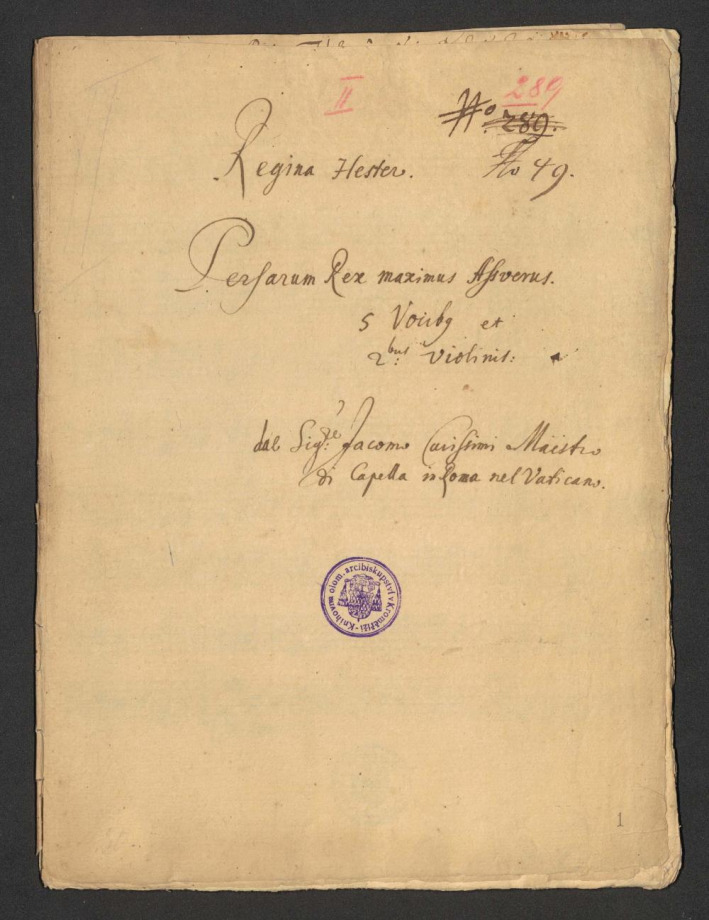 II
289
No 289.
Regina Hester. No 49.
Persarum Rex maximus Assverus.
5 Vocibg et
2bus Violinis:
dal Sigre Jacomo Carissimi Maistro
di Capella in Roma nel Vaticano.
Knihovna olom. arcibiskupství v Kroměříži
1